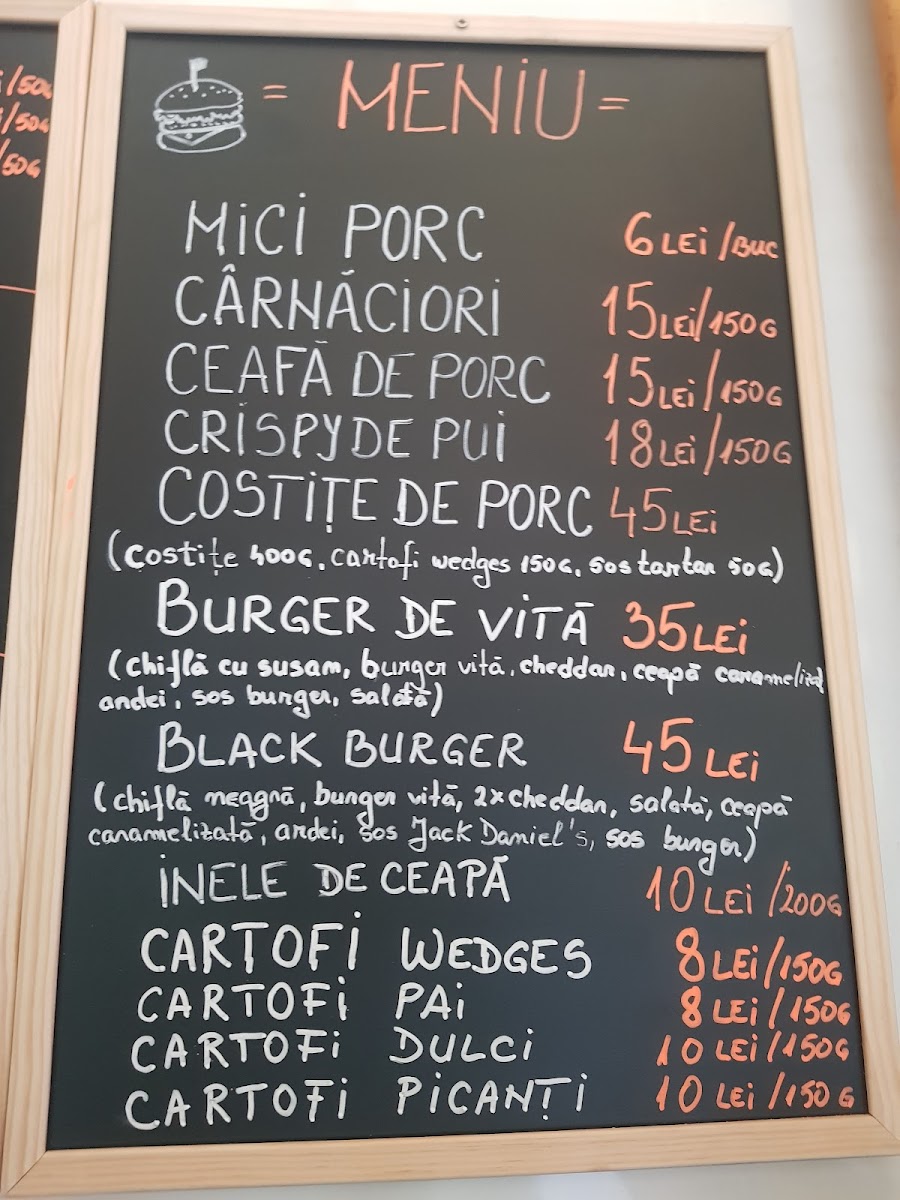 i/150G
i/150G
/150G
= MENIU =
MICI PORC 6 LEI /BUC
CÂRNĂCIORI 15 LEI/150G
CEAFĂ DE PORC 15 LEI/150G
CRISPY DE PUI 18 LEI/150G
COSTIȚE DE PORC 45 LEI
(costițe 400G, cartofi wedges 150G, sos tartar 50G)
BURGER DE VITĂ 35 LEI
(chiflă cu susam, burger vită, cheddar, ceapă caramelizată
ardei, sos burger, salată)
BLACK BURGER 45 LEI
(chiflă neagră, burger vită, 2x cheddar, salată, ceapă
caramelizată, ardei, sos Jack Daniel's, sos burger)
INELE DE CEAPĂ 10 LEI /200G
CARTOFI WEDGES 8 LEI/150G
CARTOFI PAI 8 LEI/150G
CARTOFI DULCI 10 LEI/150G
CARTOFI PICANȚI 10 LEI/150 G